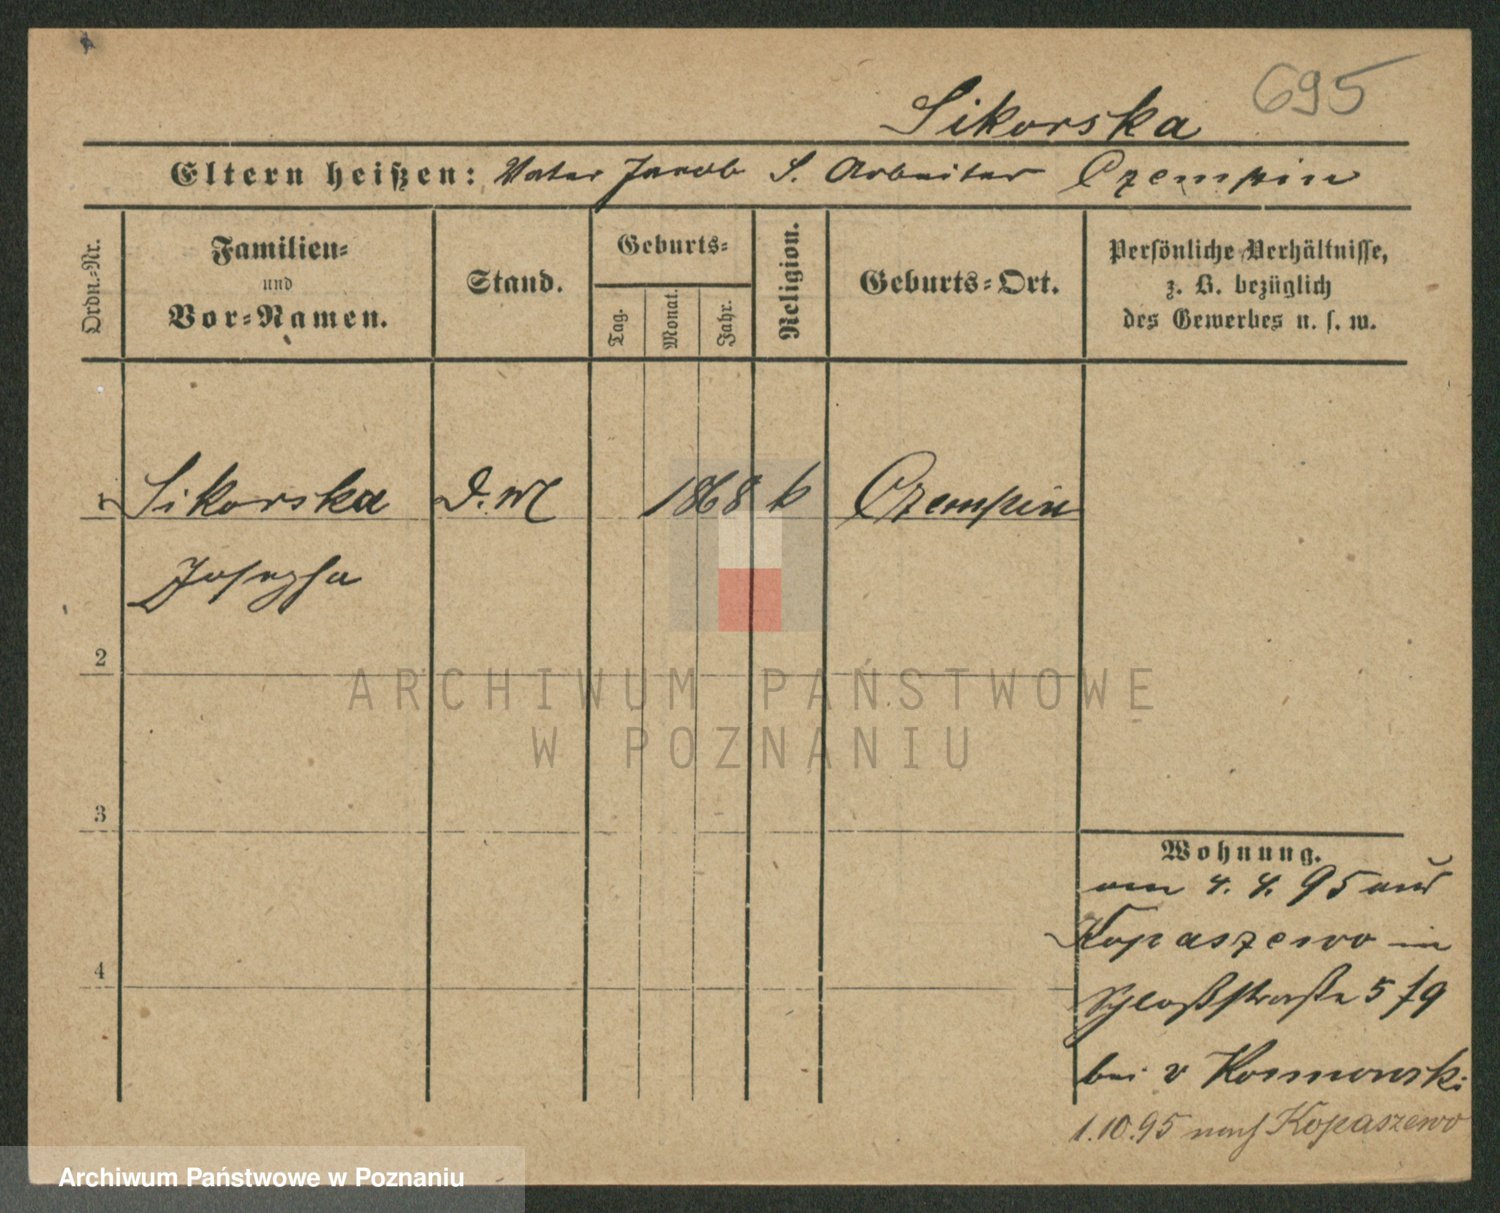 695
Sikorska
Eltern heißen: Vater Jacob S. Arbeiter Czempin
Ordn.-Nr.
Familien-
und
Vor-Namen.
Stand.
Geburts-
Tag.
Monat.
Jahr.
Religion.
Geburts-Ort.
Persönliche Verhältnisse,
z. B. bezüglich
des Gewerbes u. s. w.
1 Sikorska D.M. 1868 k Czempin
Josepha
2
ARCHIWUM PAŃSTWOWE
W POZNANIU
3
4
Wohnung.
am 4.4.95 aus
Kopaszewo in
Schloßstraße 5
bei v Kosmowski
1.10.95 nach Kopaszewo
Archiwum Państwowe w Poznaniu